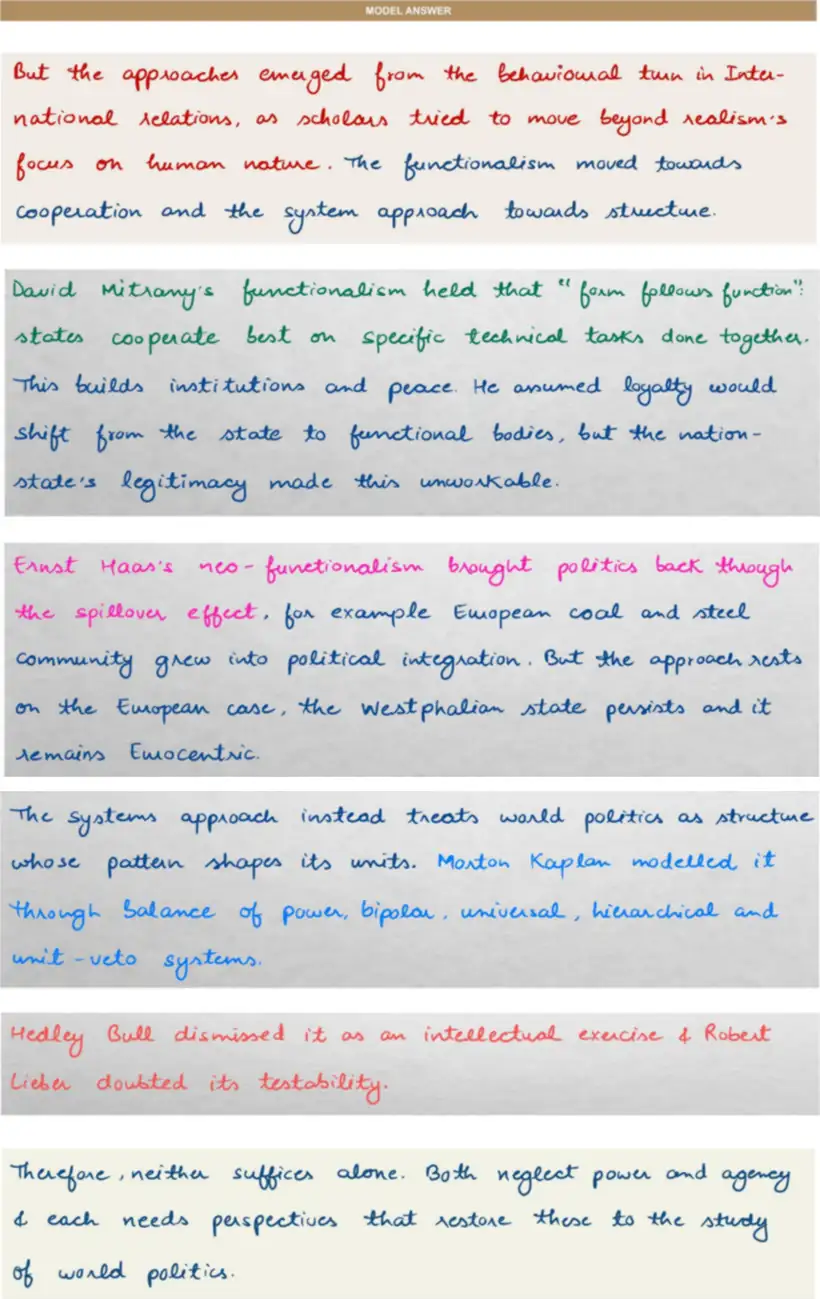 MODEL ANSWER
But the approaches emerged from the behavioural turn in Inter-
national relations, as scholars tried to move beyond realism's
focus on human nature. The functionalism moved towards
cooperation and the system approach towards structure.
David Mitrany's functionalism held that "form follows function":
states cooperate best on specific technical tasks done together.
This builds institutions and peace. He assumed loyalty would
shift from the state to functional bodies, but the nation-
state's legitimacy made this unworkable.
Ernst Haas's neo-functionalism brought politics back through
the spillover effect, for example European coal and steel
community grew into political integration. But the approach rests
on the European case, the Westphalian state persists and it
remains Eurocentric.
The systems approach instead treats world politics as structure
whose pattern shapes its units. Morton Kaplan modelled it
through balance of power, bipolar, universal, hierarchical and
unit-veto systems.
Hedley Bull dismissed it as an intellectual exercise & Robert
Lieber doubted its testability.
Therefore, neither suffices alone. Both neglect power and agency
& each needs perspectives that restore these to the study
of world politics.